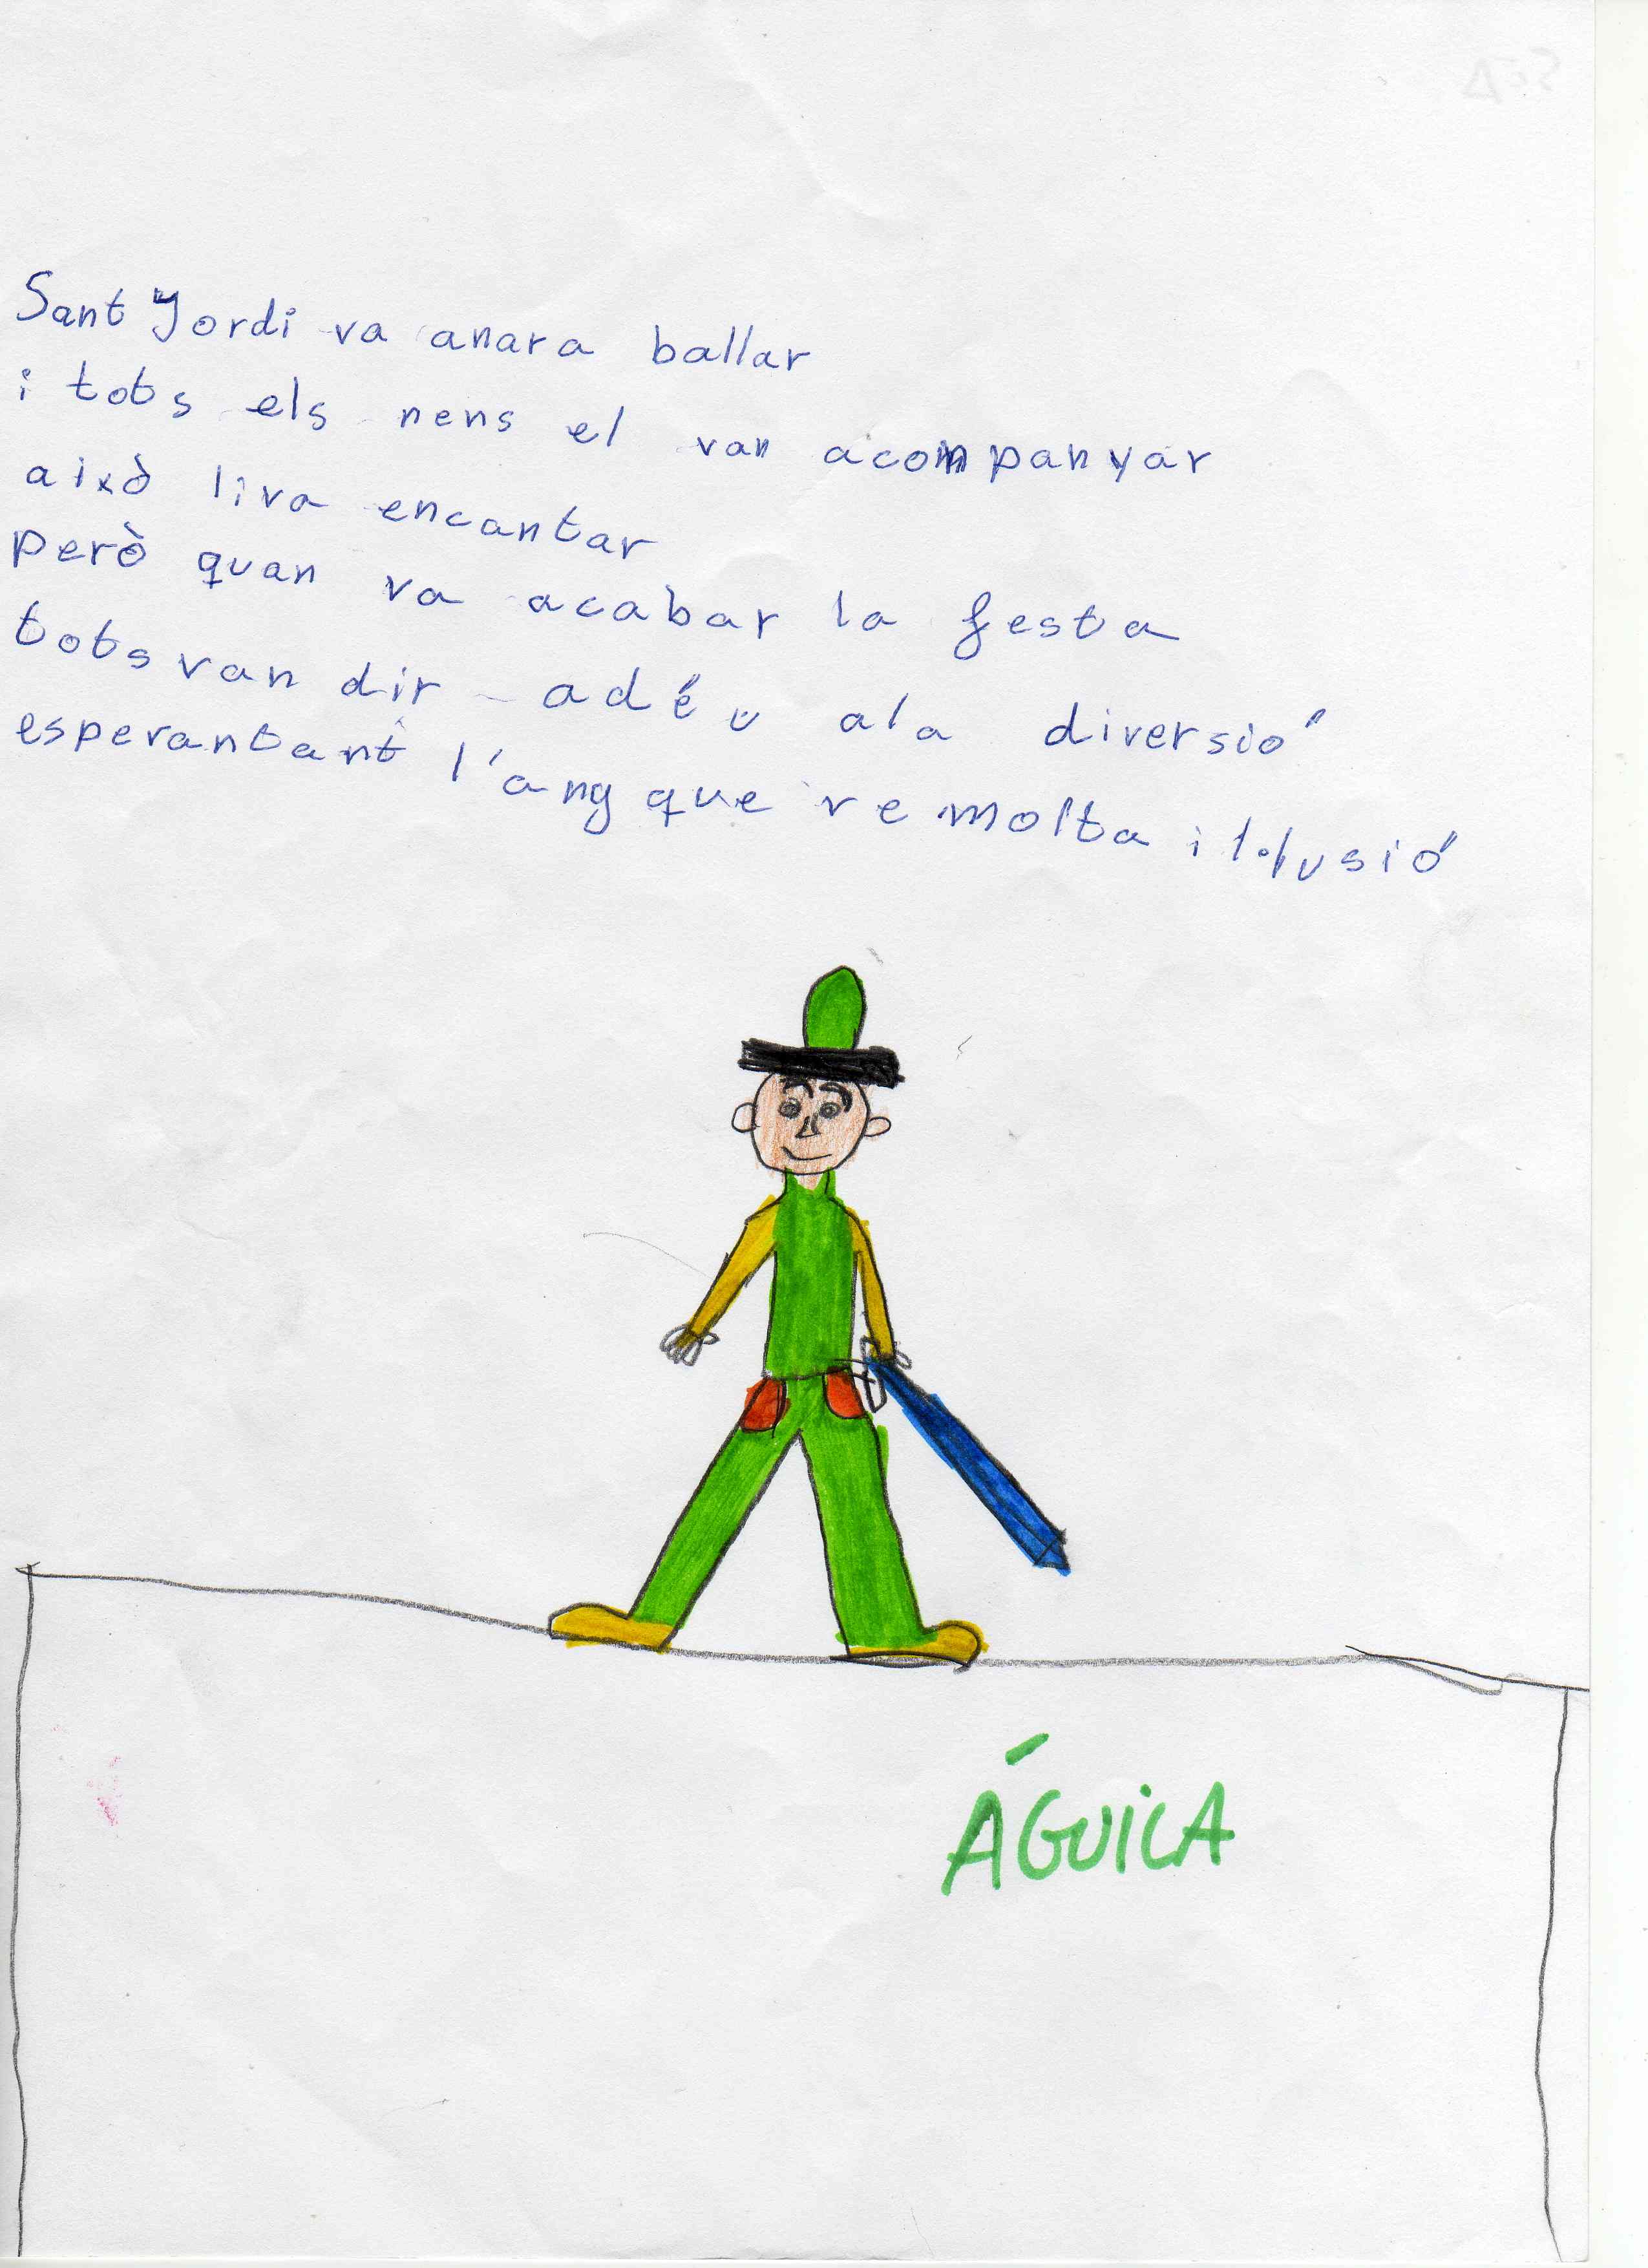 Sant Jordi va anara ballar
i tots els nens el van acompanyar
això liva encantar
però quan va acabar la festa
tots van dir adéu ala diversió
esperantant l'any que ve molta il·lusió
ÁGUILA